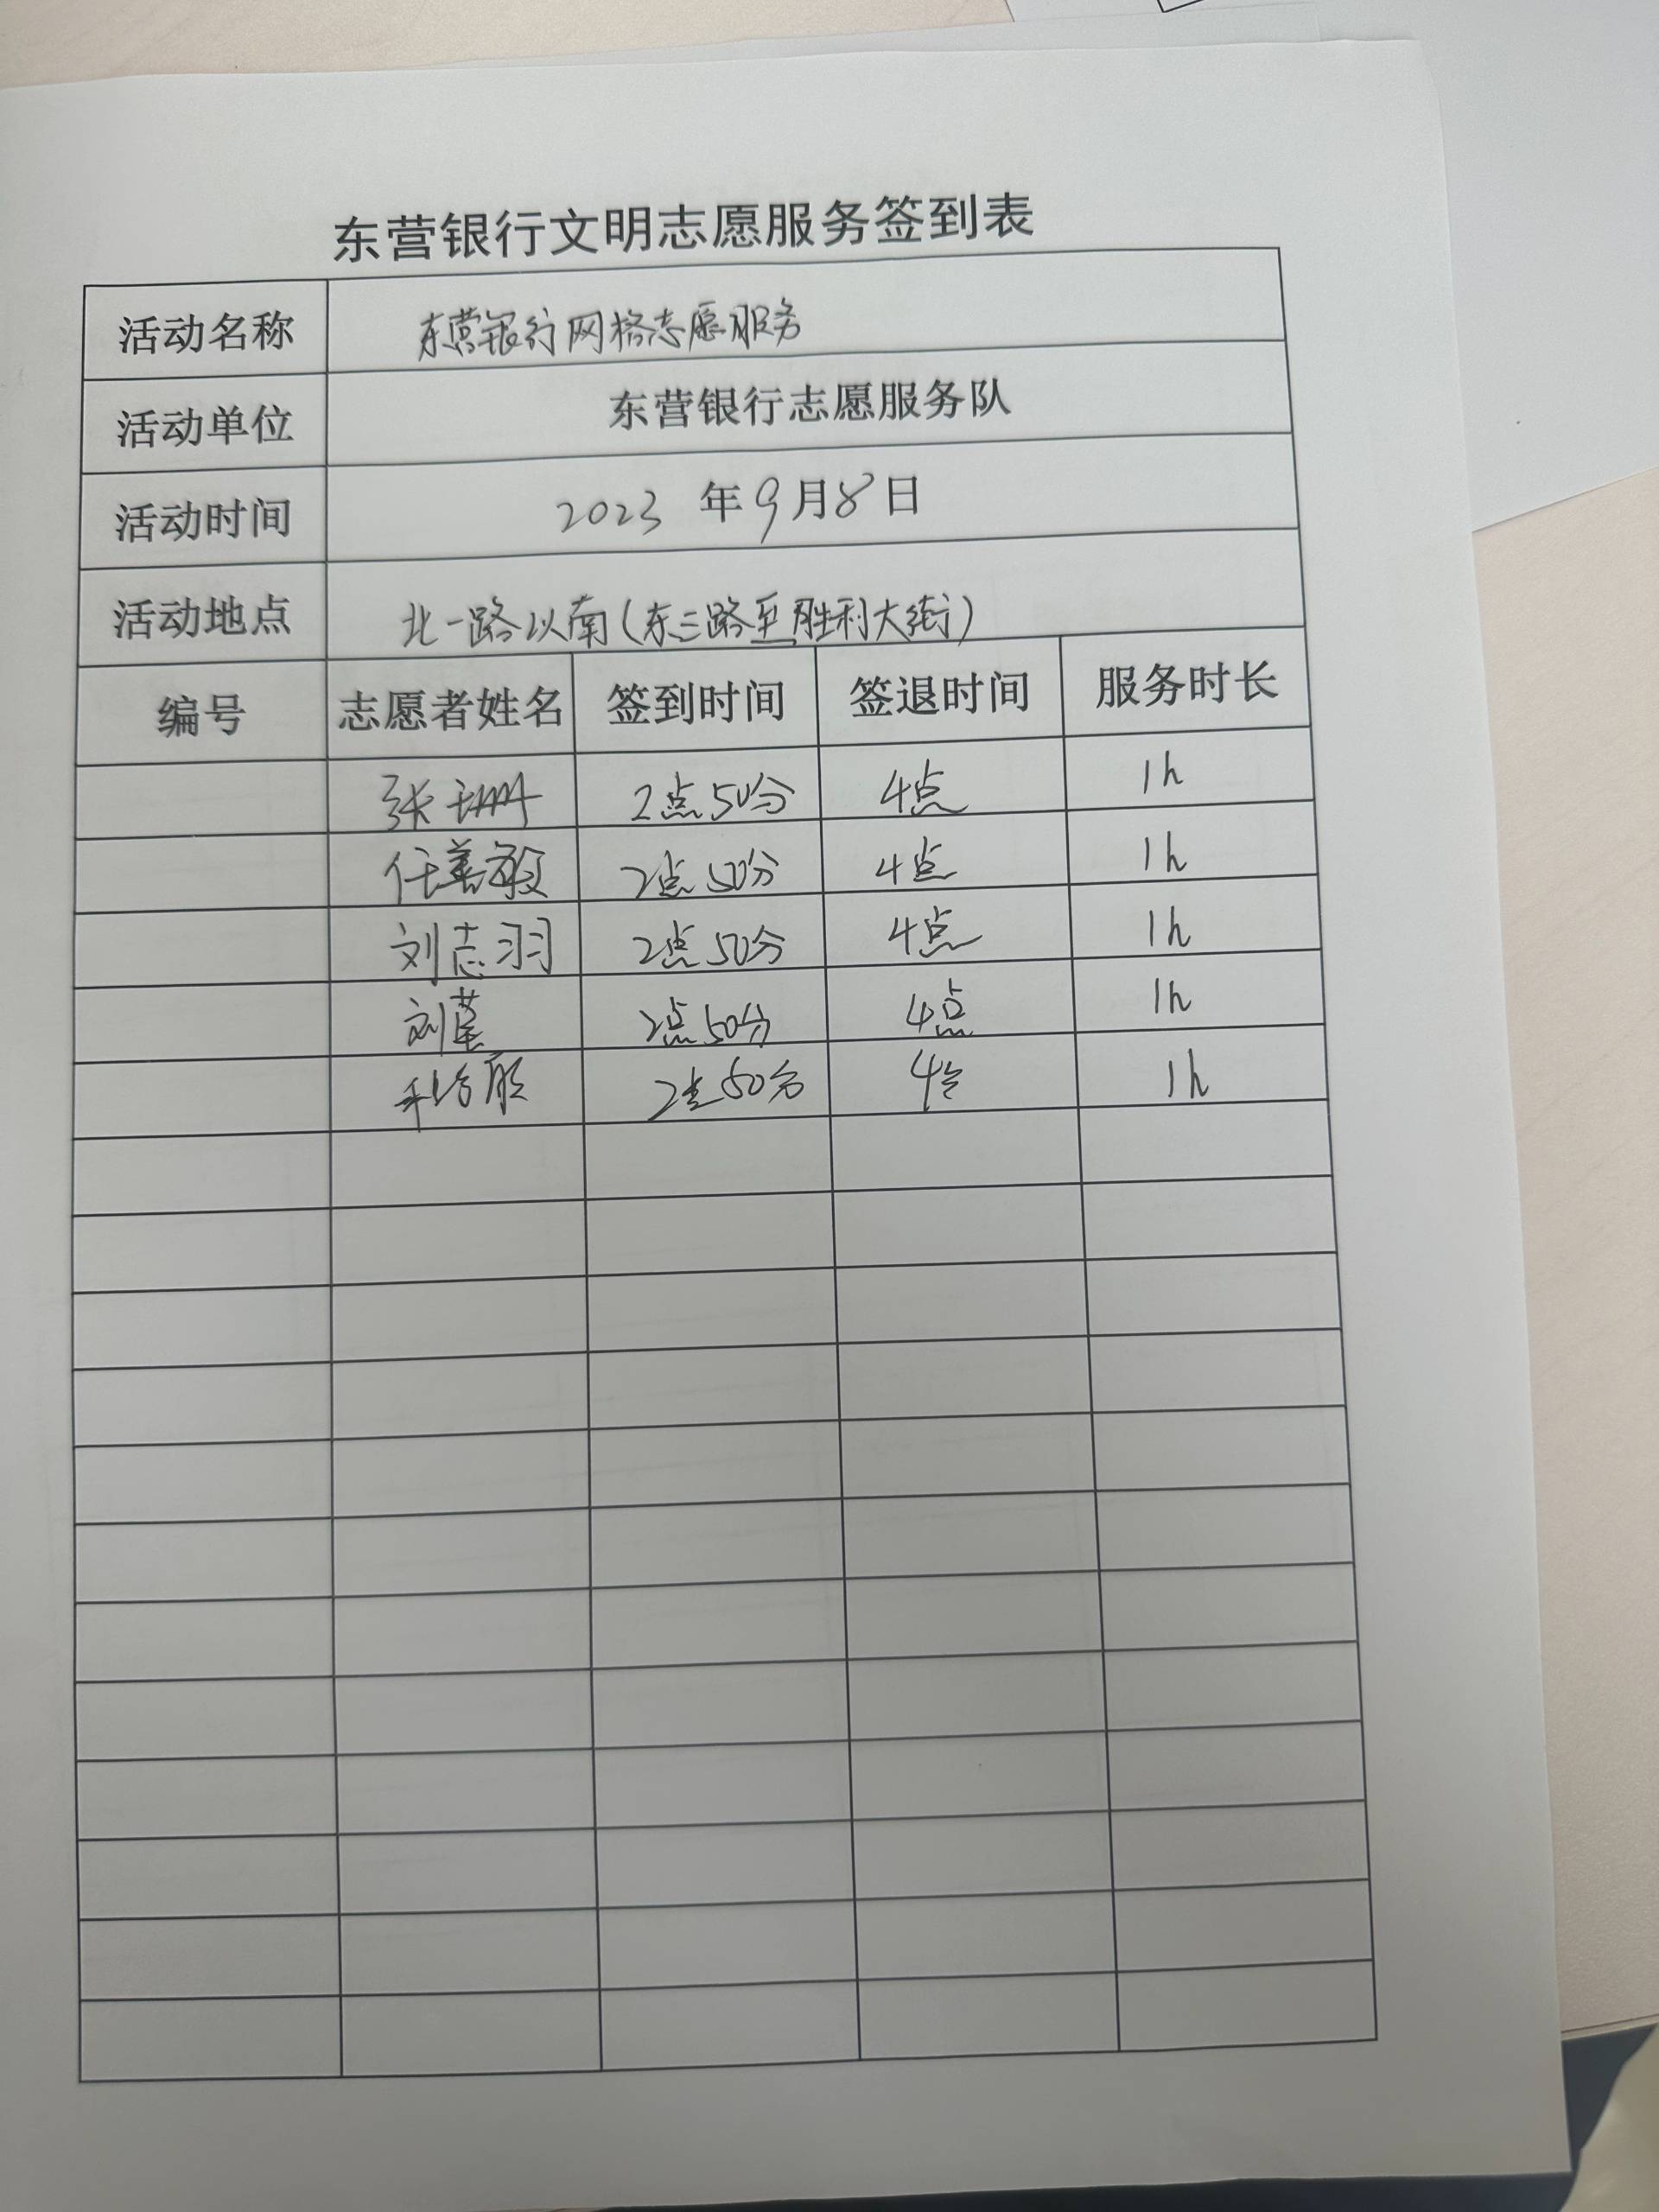 东营银行文明志愿服务签到表
活动名称 东营银行网格志愿服务
活动单位 东营银行志愿服务队
活动时间 2023 年 9 月 8 日
活动地点 北一路以南(东三路至胜利大街)
编号 志愿者姓名 签到时间 签退时间 服务时长
张珊 2点50分 4点 1h
任善敏 2点50分 4点 1h
刘志羽 2点50分 4点 1h
刘莹 2点50分 4点 1h
2点50分 4点 1h